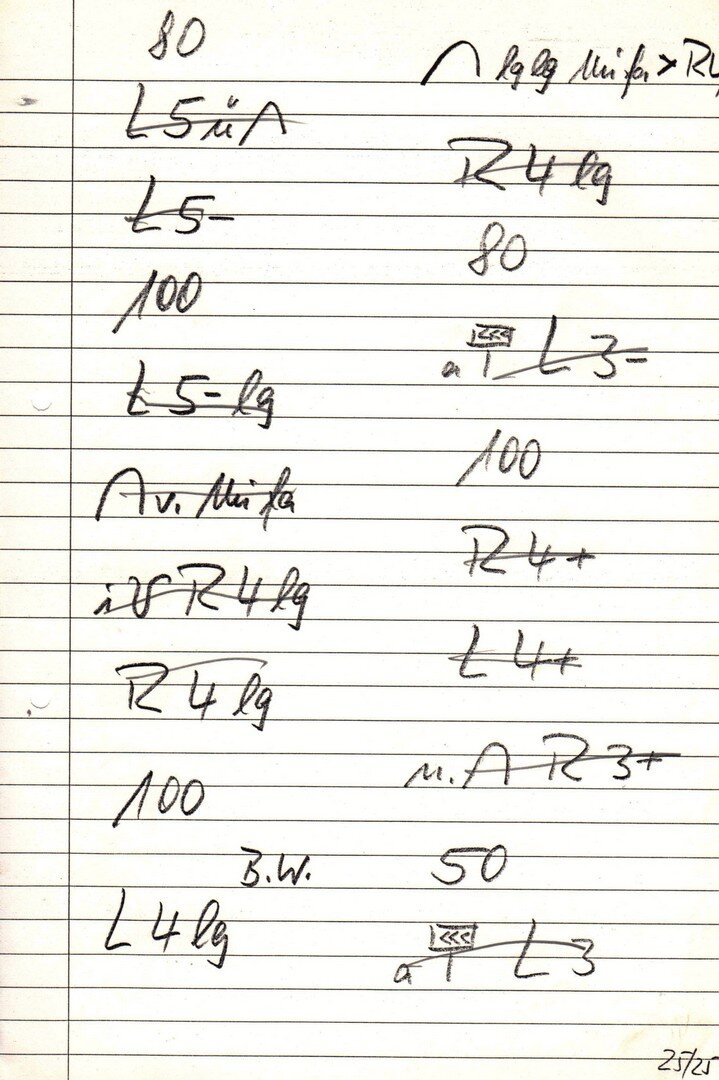 80
L5 ü ∩
L5-
100
L5- lg
∩ v. Mifa
R4 lg
R4 lg
100
B.W.
L4 lg
∩ lg lg Mifa > R4
R4 lg
80
a <<< L3-
100
R4+
L4+
n. ∩ R3+
50
a <<< L3
25/25